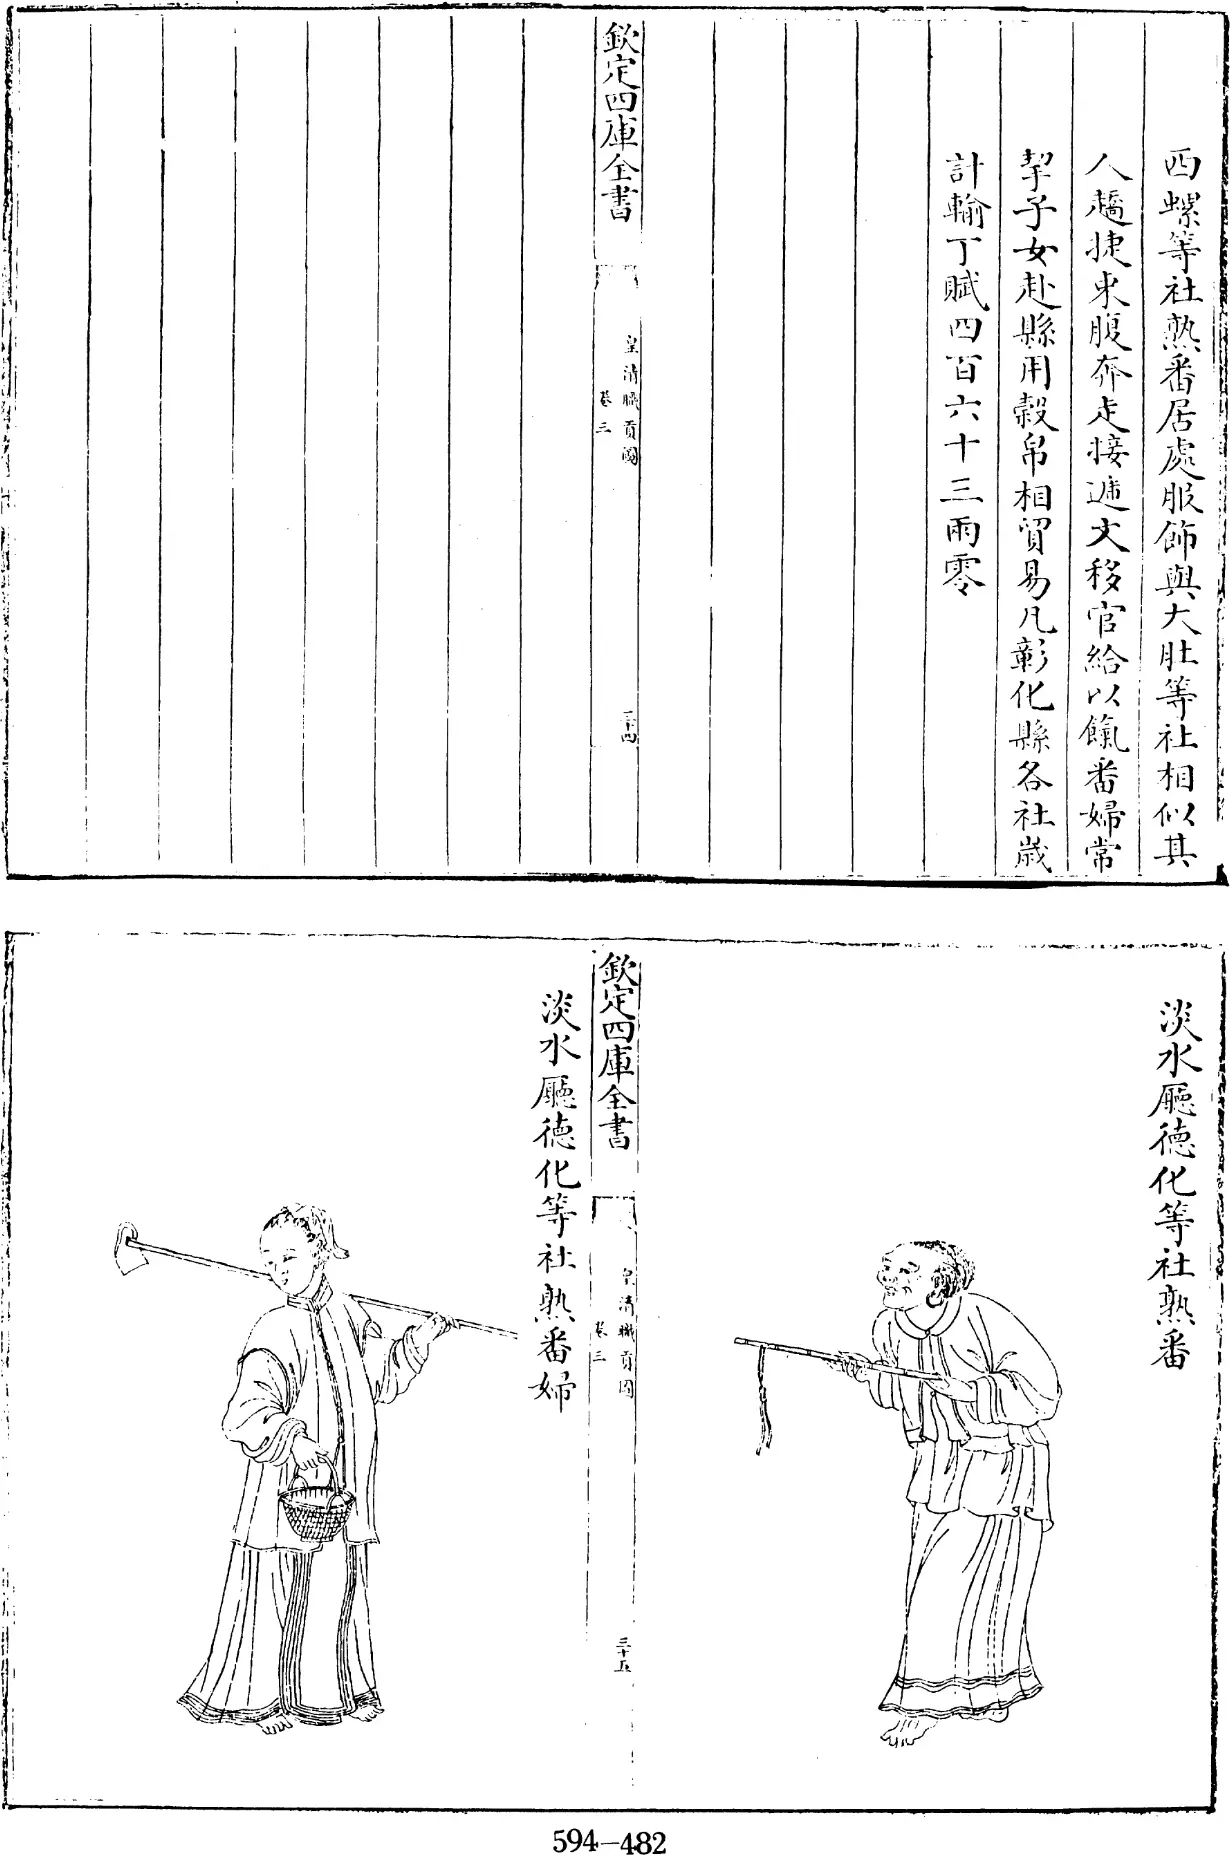 西螺等社熟番居處服飾與大肚等社相似其
人趫捷束腹奔走接遞文移官給以餼番婦常
挈子女赴縣用穀帛相貿易凡彰化縣各社歲
計輸丁賦四百六十三兩零
欽定四庫全書
皇清職貢圖
卷三
三十四
淡水廳德化等社熟番
欽定四庫全書
皇清職貢圖
卷三
三十五
淡水廳德化等社熟番婦
594-482